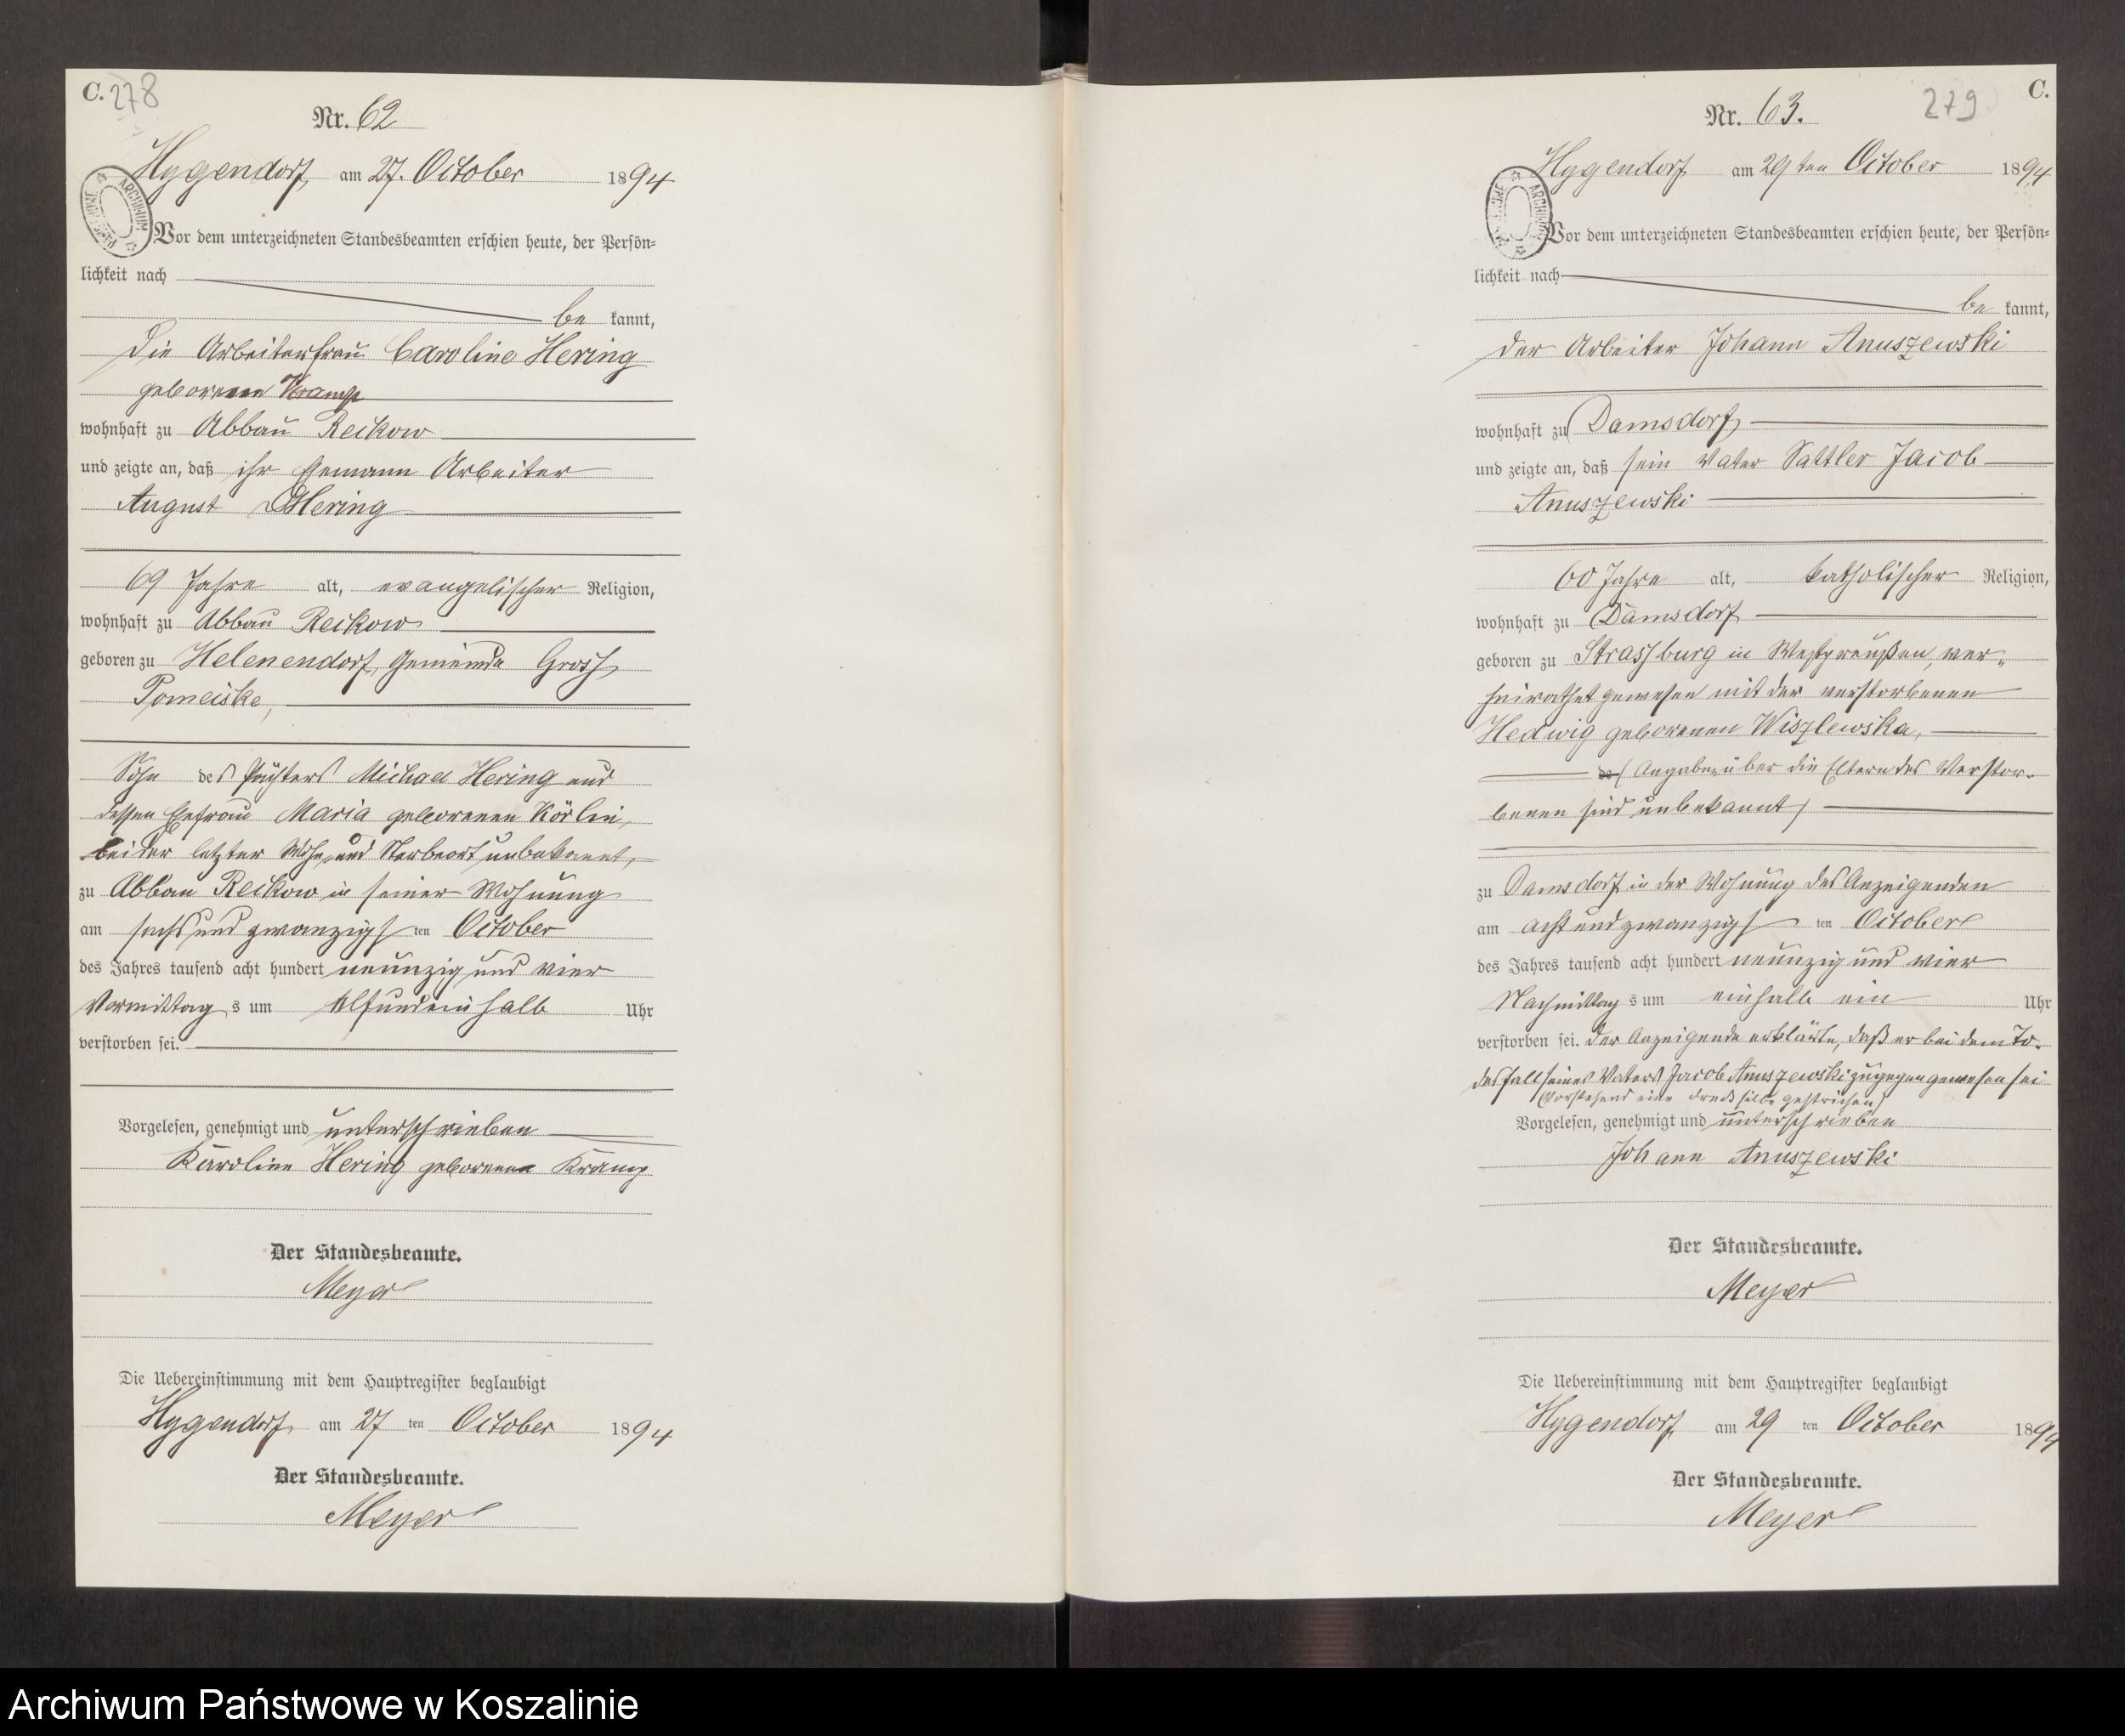 C. 278
Nr. 62
Hygendorf, am 27. October 1894
Vor dem unterzeichneten Standesbeamten erschien heute, der Persön=
lichkeit nach
be kannt,
die Arbeiterfrau Caroline Hering
geborenen Kramp
wohnhaft zu Abbau Reckow
und zeigte an, daß ihr Ehemann Arbeiter
August Hering
69 Jahre alt, evangelischer Religion,
wohnhaft zu Abbau Reckow
geboren zu Helenendorf, Gemeinde Gross
Pomeiske,
Sohn des Pächters Michael Hering und
dessen Ehefrau Maria geborenen Körlin,
beider letzter Wohn- und Sterbeort unbekannt,
zu Abbau Reckow in seiner Wohnung
am sechs und zwanzigsten October
des Jahres tausend acht hundert neunzig und vier
Vormittags um elfundeinhalb Uhr
verstorben sei.
Vorgelesen, genehmigt und unterschrieben
Karoline Hering geborenen Kramp
Der Standesbeamte.
Meyer
Die Uebereinstimmung mit dem Hauptregister beglaubigt
Hygendorf, am 27 ten October 1894
Der Standesbeamte.
Meyer
279 C.
Nr. 63.
Hygendorf am 29ten October 1894
Vor dem unterzeichneten Standesbeamten erschien heute, der Persön=
lichkeit nach
be kannt,
der Arbeiter Johann Anuszewski
wohnhaft zu Damsdorf
und zeigte an, daß sein Vater Sattler Jacob
Anuszewski
60 Jahre alt, katholischer Religion,
wohnhaft zu Damsdorf
geboren zu Strassburg in Westpreußen, ver-
heirathet gewesen mit der verstorbenen
Hedwig geborenen Wiszlewska,
de (Angaben über die Eltern des Verstor-
benen sind unbekannt)
zu Damsdorf in der Wohnung des Anzeigenden
am acht und zwanzigsten October
des Jahres tausend acht hundert neunzig und vier
Nachmittags um einhalb ein Uhr
verstorben sei. Der Anzeigende erklärte, daß er bei dem To-
desfall seines Vaters Jacob Anuszewski zugegen gewesen sei
(Vorstehend eine Drucksilbe gestrichen)
Vorgelesen, genehmigt und unterschrieben
Johann Anuszewski
Der Standesbeamte.
Meyer
Die Uebereinstimmung mit dem Hauptregister beglaubigt
Hygendorf, am 29 ten October 1894
Der Standesbeamte.
Meyer
Archiwum Państwowe w Koszalinie